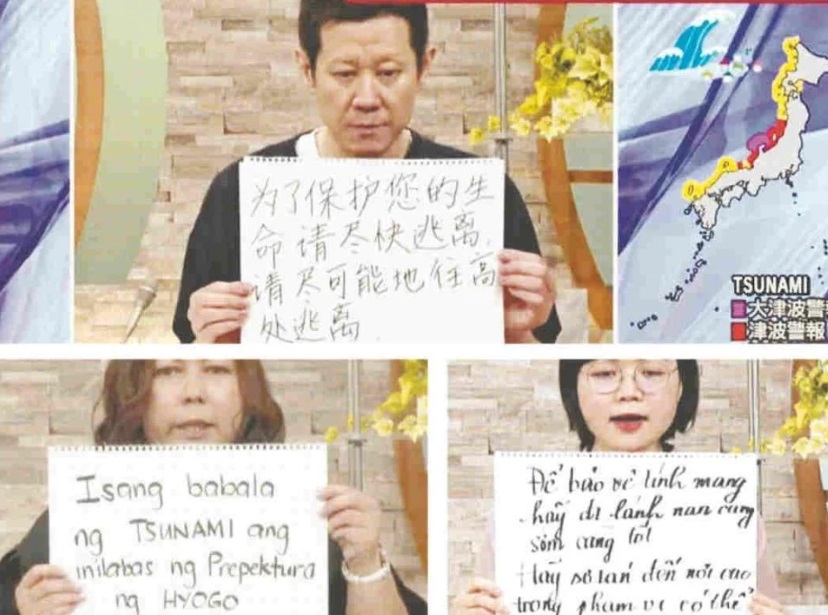 为了保护您的生
命请尽快逃离.
请尽可能地往高
处逃离.
TSUNAMI
大津波警
津波警報
Isang babala
ng TSUNAMI ang
inilabas ng Prepektura
ng HYOGO
Để bảo vệ tính mạng
hãy đi lánh nạn càng
sớm càng tốt
Hãy sơ tán đến nơi cao
trong phạm vi có thể